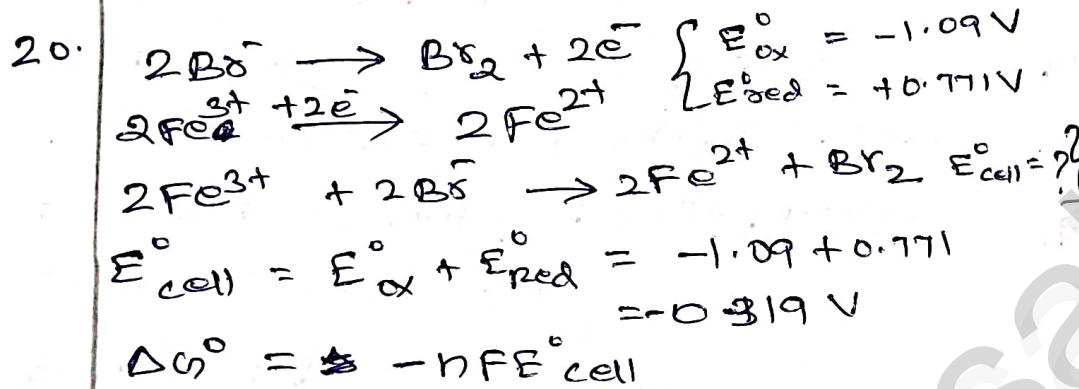 20. 2Br⁻ → Br₂ + 2e⁻ { E°ox = -1.09 V
2Fe³⁺ +2e⁻ → 2Fe²⁺ E°red = +0.771V.
2Fe3+ + 2Br⁻ → 2Fe²⁺ + Br₂ E°cell = ??
E°cell = E°ox + E°Red = -1.09 + 0.771
=-0 319 V
ΔG° = -nFE°cell